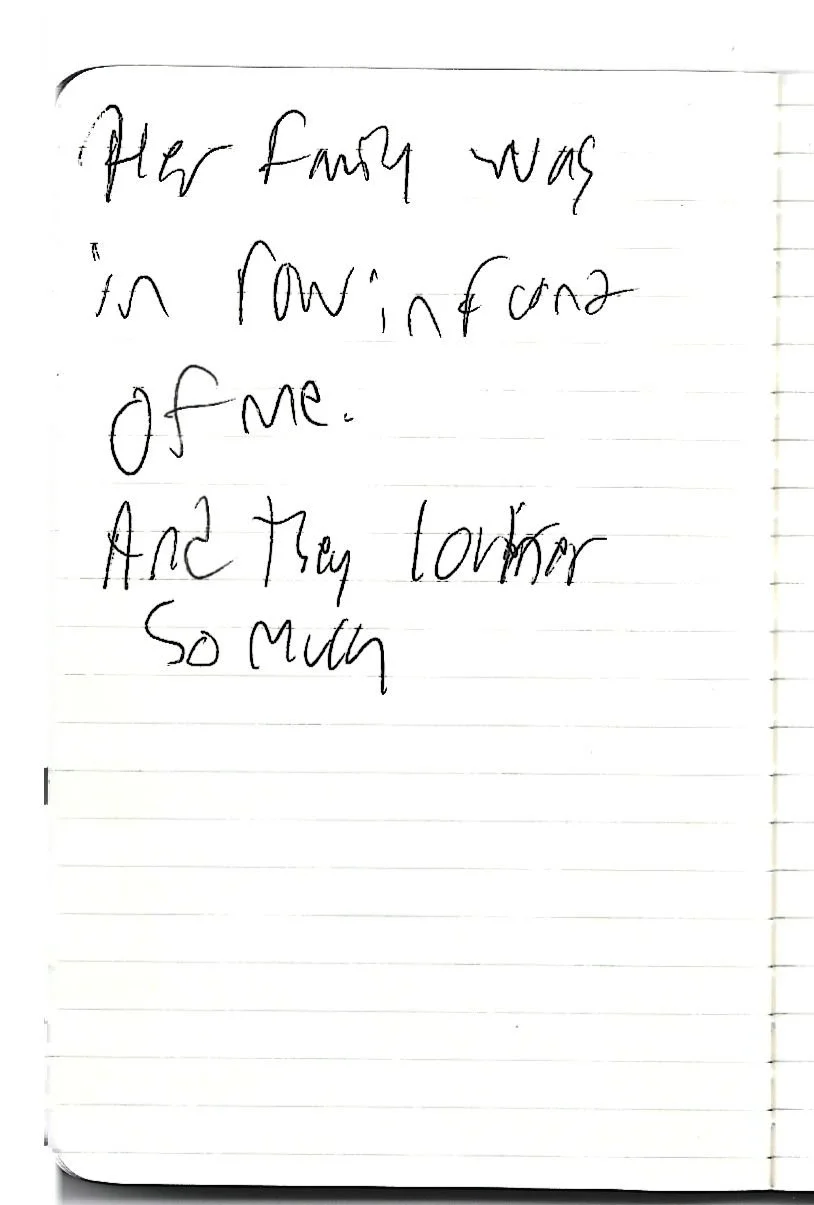 Her family was
in row in front
of me.
And they love her
so much